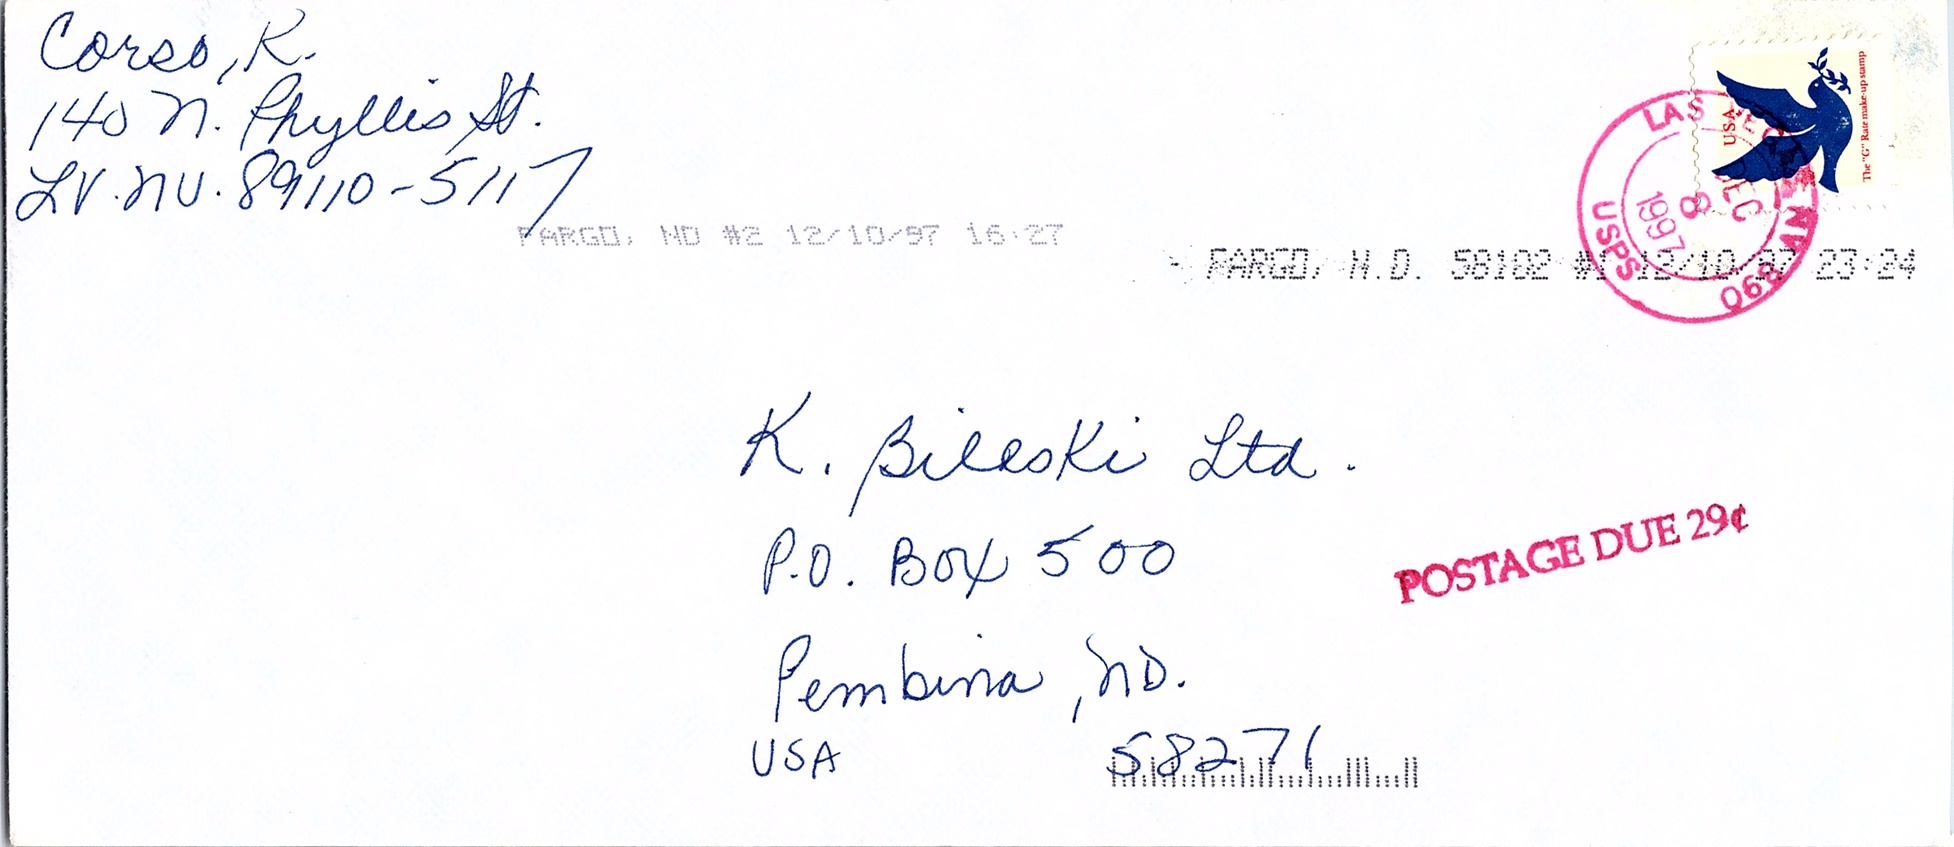 Corso, K.
140 N. Phyllis St.
LV. NV. 89110-5117
FARGO, ND #2 12/10/97 16:27
USA
The "G" Rate make-up stamp
LAS VEGAS NV 890
DEC
8
1997
USPS
FARGO, N.D. 58102 #1 12/10/97 23:24
K. Bileski Ltd.
P.O. Box 500
POSTAGE DUE 29¢
Pembina, ND.
USA 58271